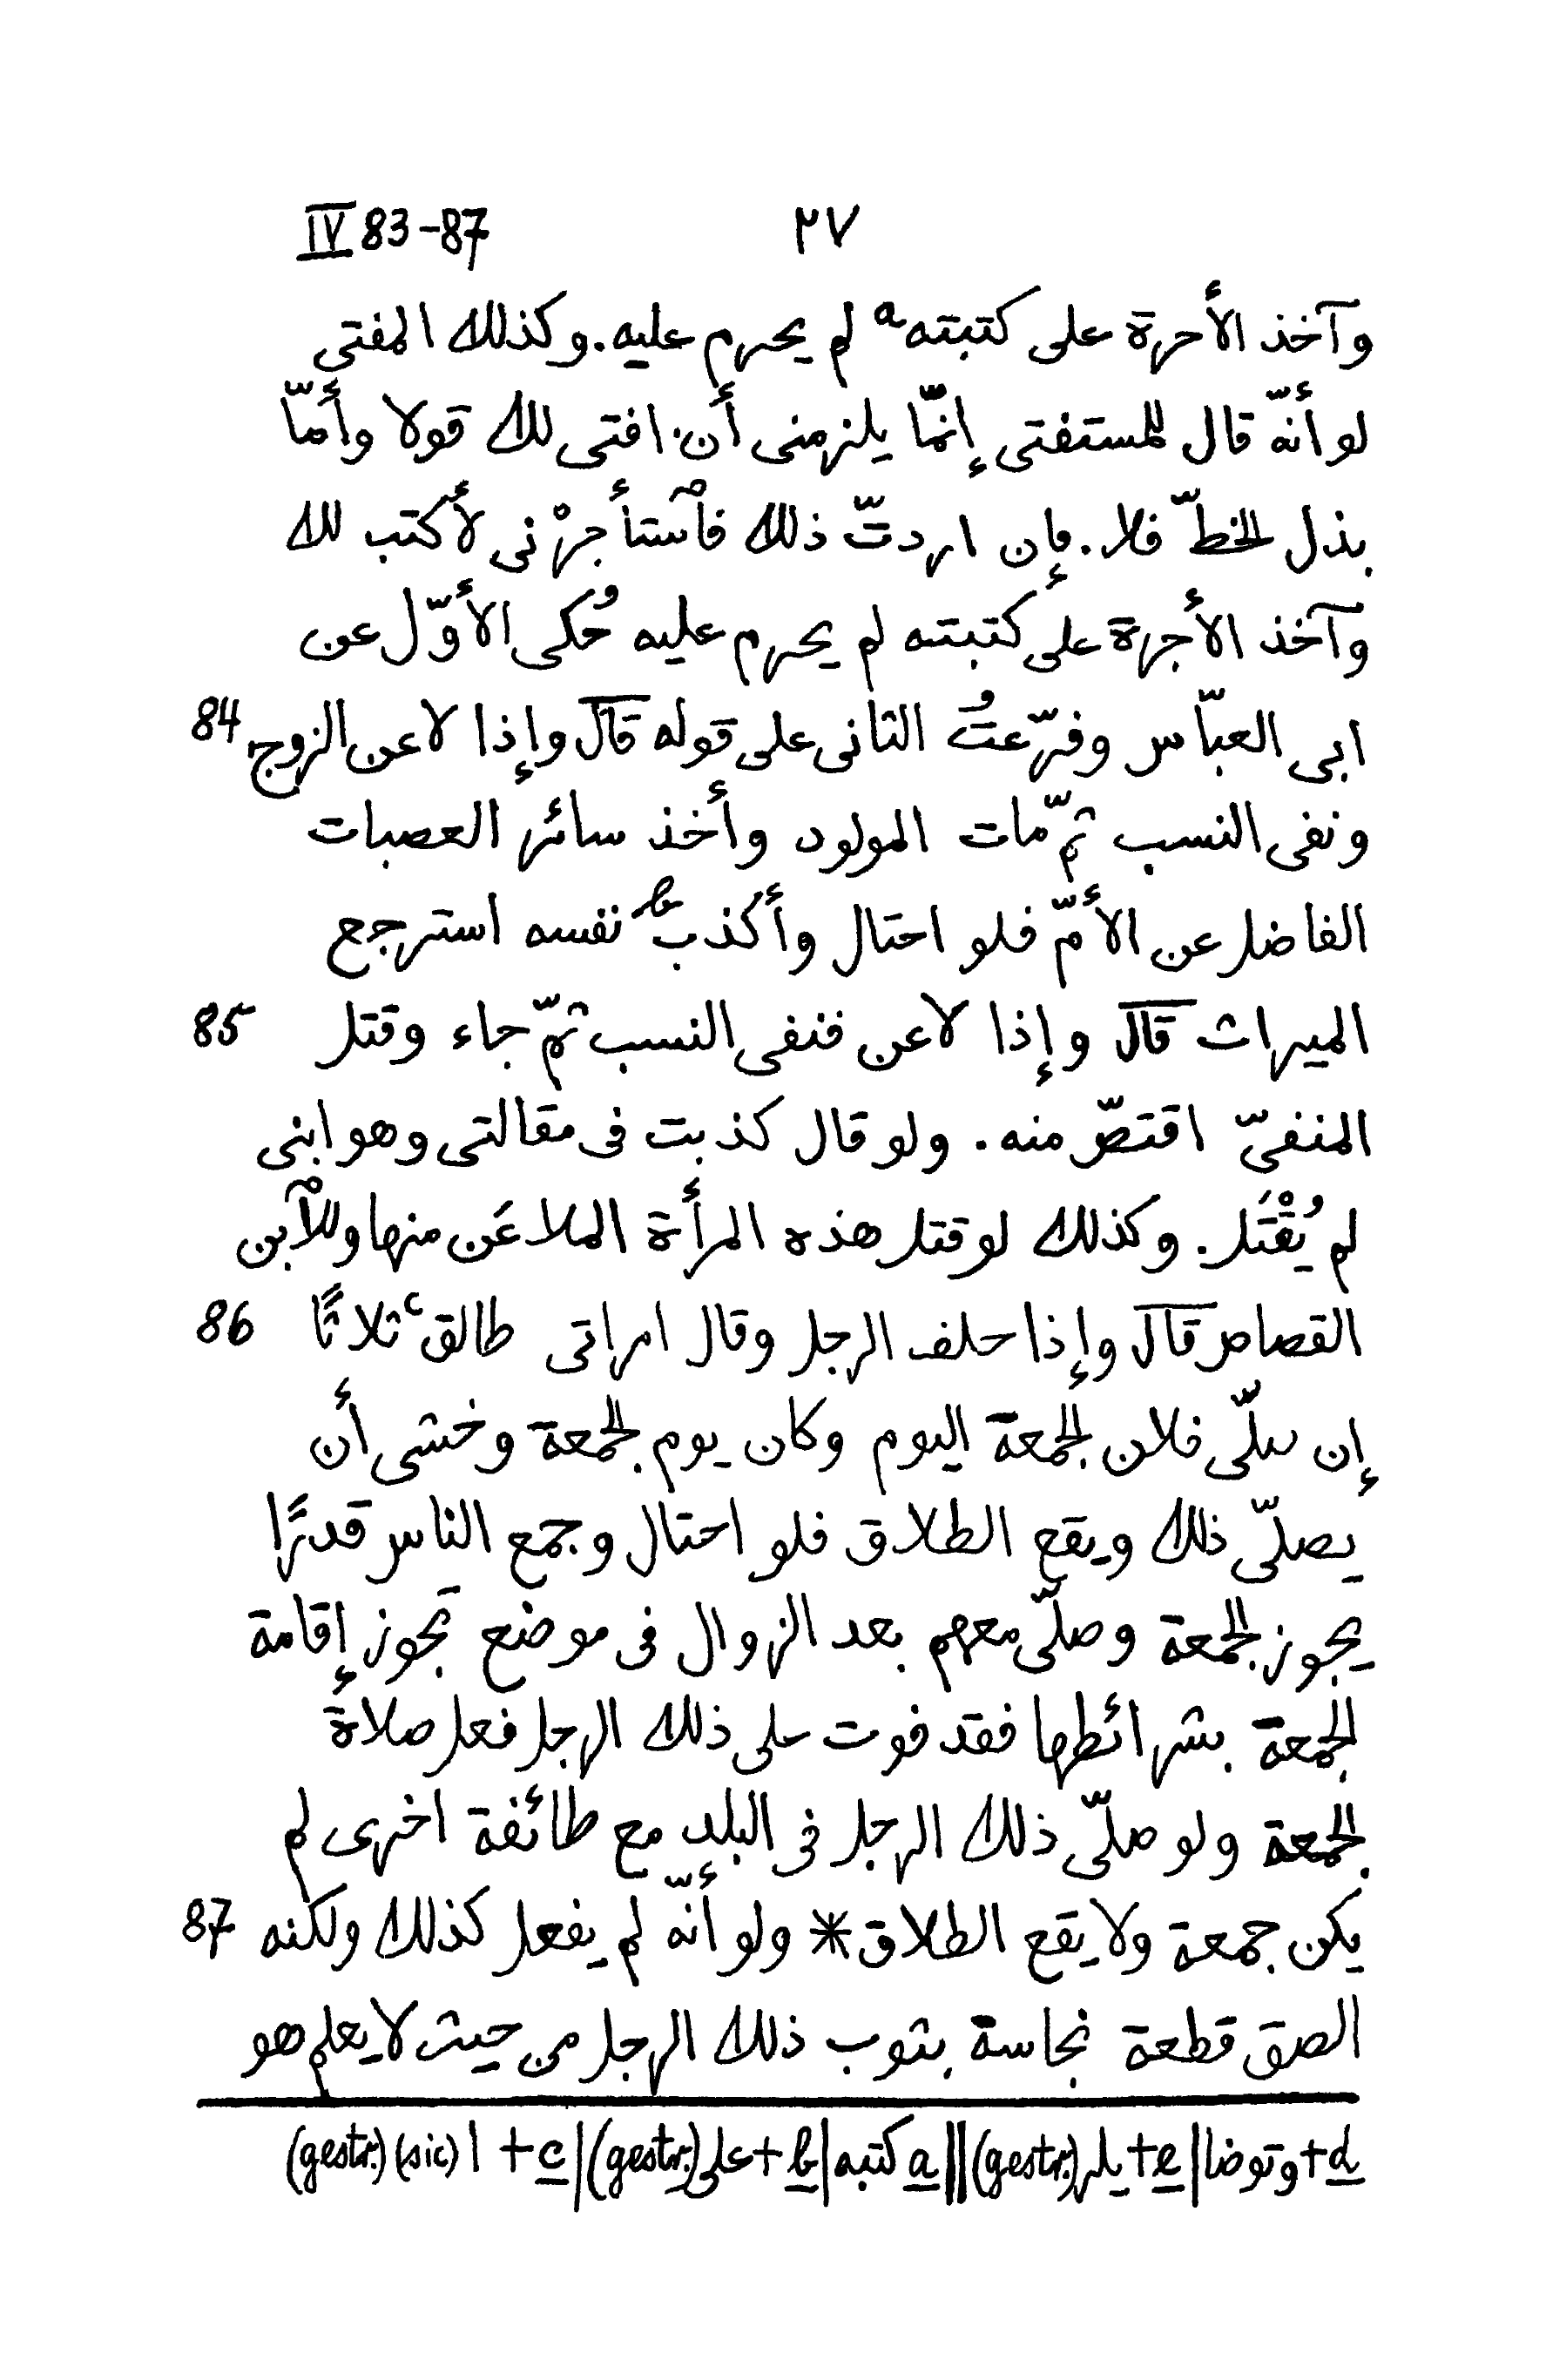 IV 83-87 ٢٧
وآخذ الأحرة على كتبتهa لم يحرم عليه. وكذلك المفتى
لو أنّه قال للمستفتى إنّما يلزمنى أن افتى لك قولا وأمّا
بذل الخطّ فلا. فإن اردتّ ذلك فٱستأجرْنى لأكتب لك
وآخذ الأجرة على كتبته لم يحرم عليه حُكى الأوّل عن
ابى العبّاس وفرّعتُ الثانى على قوله قال وإذا لاعن الزوج 84
ونفى النسب ثمّ مات المولود وأخذ سائر العصبات
الفاضل عن الأمّ فلو احتال وأكذبb نفسه استرجع
الميراث قال وإذا لاعن فنفى النسب ثمّ جاء وقتل 85
المنفىّ اقتصّ منه. ولو قال كذبت فى مقالتى وهو ابنى
لم يُقْتَل. وكذلك لو قتل هذه المرأة الملاعَن منها وللٱبن
القصاص قال وإذا حلف الرجل وقال امراتى طالقc ثلاثًا 86
إن صلّى فلان الجمعة اليوم وكان يوم الجمعة وخشى أن
يصلّى ذلك ويقع الطلاق فلو احتال وجمع الناس قدرًا
يجوز الجمعة وصلّى معهم بعد الزوال فى موضع تجوز إقامة
الجمعة بشرائطها فقد فوت على ذلك الرجل فعل صلاة
الجمعة ولو صلّى ذلك الرجل فى البلد مع طائفة اخرى لم
يكن جمعة ولا يقع الطلاق * ولو أنّه لم يفعل كذلك ولكنه 87
الصق قطعة نجاسة بثوب ذلك الرجل من حيث لا يعلم هو
d + وتوضا | e + يلر (gestr.) || a كتبه | b + على (gestr.) | c + ا (sic) (gestr.)